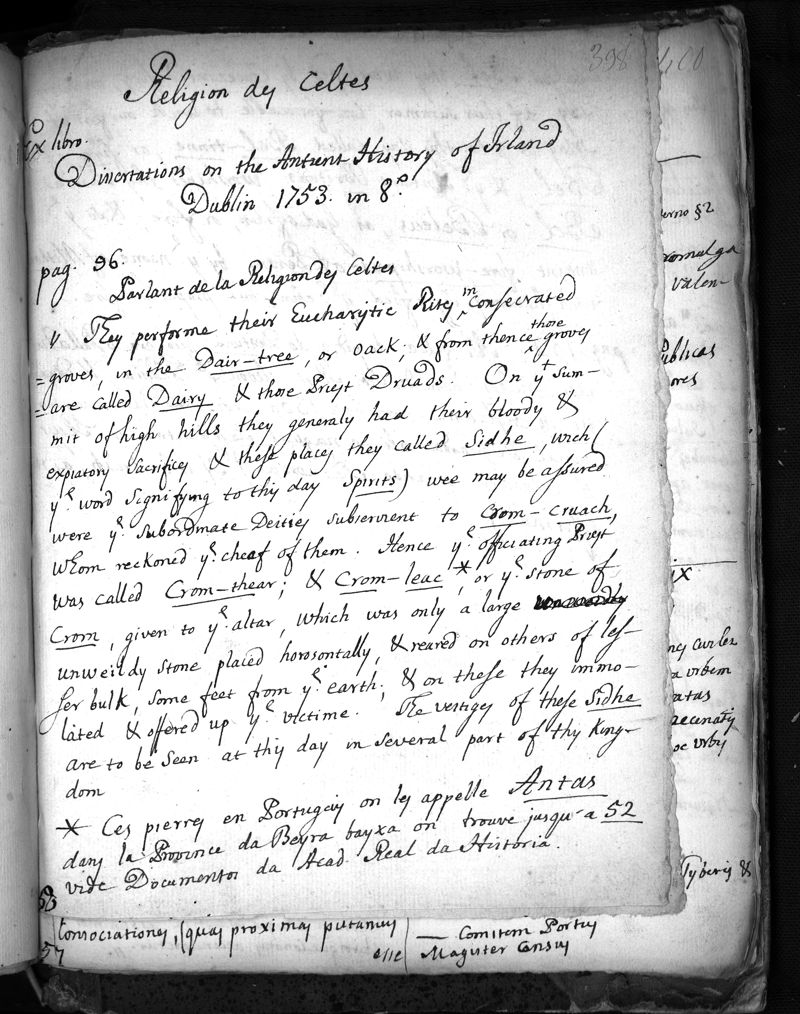 398
400
Religion des Celtes
Ex libro.
Dissertations on the Antient History of Irland
Dublin 1753. in 8.º
pag. 96.
Parlant de la Religion des Celtes
They performe their Eucharytic Rites in consecrated
=groves, in the Dair-tree, or oack; & from thence those groves
=are called Dairy & those Priest Druads. On yt sum-
mit of high hills they generaly had their bloody &
expiatory sacrifices & these places they called Sidhe, wich (
ye word signifying to this day Spirits) wee may be assured
were ye subordinate Deities subservient to Crom-cruach,
whom reckoned ye cheaf of them. Hence ye officiating Priest
was called Crom-thear; & Crom-leac *, or ye stone of
Crom, given to ye altar, which was only a large
unweildy stone placed horosontally, & reared on others of les-
ser bulk, some feet from ye earth; & on these they immo-
lated & offered up ye victime. The vestiges of these Sidhe
are to be seen at this day in several part of this King-
dom
* Ces pierres en Portugais on les appelle Antas
dans la Province da Beyra bayxa on trouve jusqu-a 52
vide Documentos da Acad. Real da Historia.
erno §2
romulga
valen-
ublicas
ores
ix
a urbem
atas
Tyberis &
58
Consociationes, (quas proximas putamus
57
esse
— Comitem Portus
Magister Census